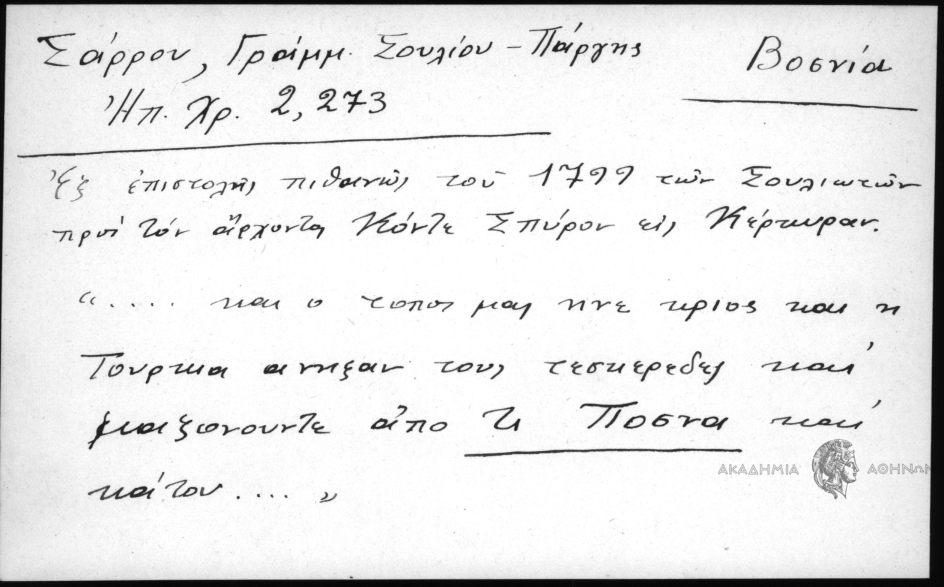 Σάρρου, Γράμμ. Σουλίου – Πάργης
Βοσνία
Ἠπ. Χρ. 2, 273
Ἐξ ἐπιστολῆς πιθανῶς τοῦ 1799 τῶν Σουλιωτῶν
πρὸς τὸν ἄρχοντα Κόντε Σπύρον εἰς Κέρκυραν.
“.... και ο τοπος μας ηνε κριος και η
Τουρκια ανηξαν τους τεσκερεδες καὶ
μαζωνουντε ἀπο τι Ποσνα και
κάτου .... ”
ΑΚΑΔΗΜΙΑ ΑΘΗΝΩΝ